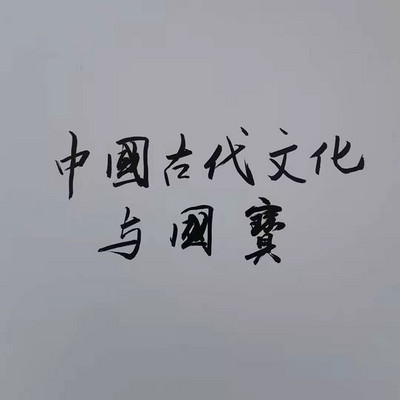 中國古代文化
与國寶